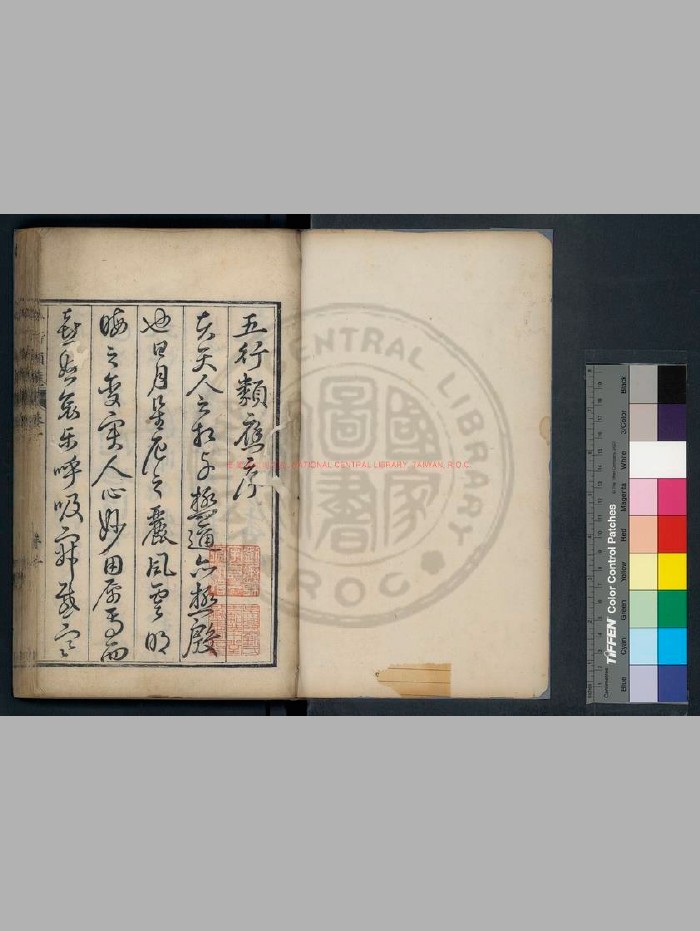 五行類應序
夫天人之相与極邇亦極殷
也日月星辰之麗風雲明
晦之變実人心妙用焉而
喜怒哀樂呼吸寂感
NATIONAL CENTRAL LIBRARY, TAIWAN, R.O.C.
CENTRAL LIBRARY
ROC
國家圖書
TIFFEN Color Control Patches
Blue
Cyan
Green
Yellow
Red
Magenta
White
3/Color
Black